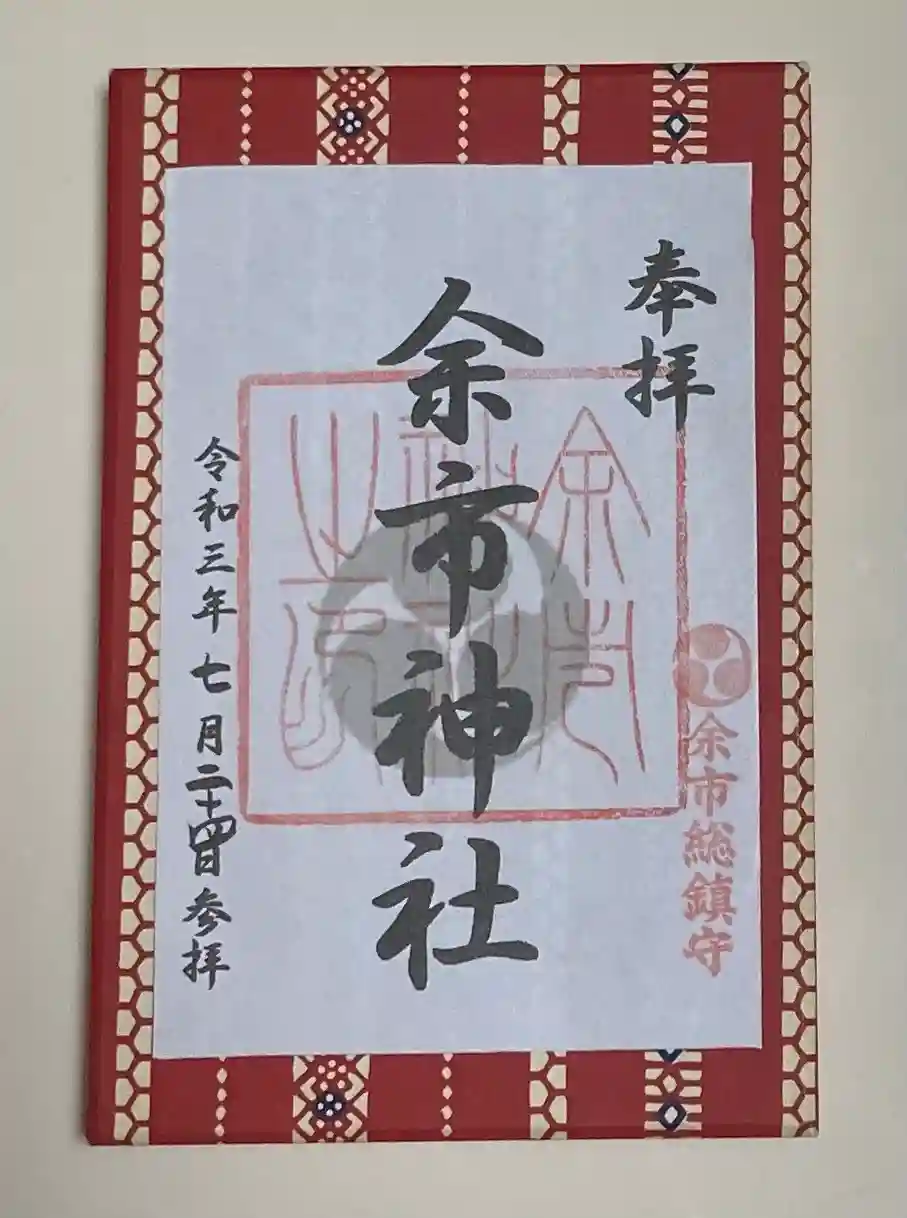 奉拝
余市総鎮守
余市神社
余市神社之印
令和三年七月二十四日参拝